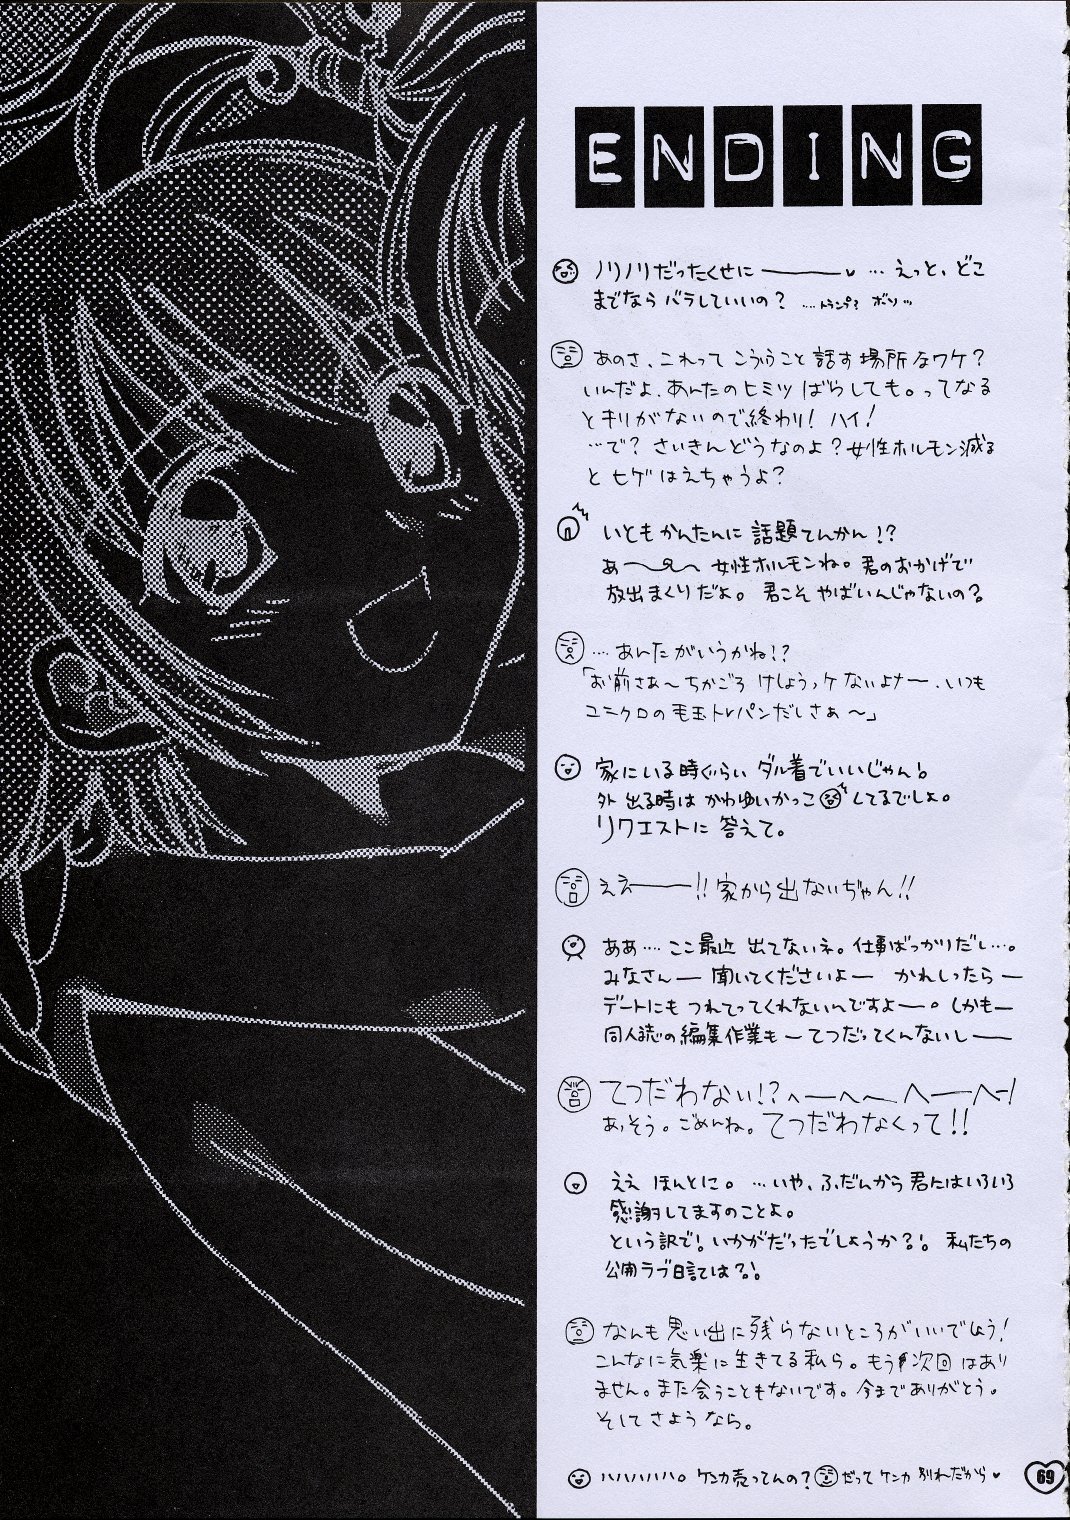 ENDING
ノリノリだったくせに ――― ♥ … えっと、どこ
までなら バラしていいの? ....トランプ? ボソッ
あのさ、これって こういうこと 話す 場所 なワケ?
いんだよ、あんたの ヒミツ ばらしても。ってなる
と キリがないので、終わり! ハイ!
…で? さいきん どうなのよ? 女性ホルモン減る
と ヒゲ はえちゃうよ?
いとも かんたんに 話題てんかん !?
あ〜〜 女性ホルモンね。君のおかげで
放出まくりだよ。 君こそ やばいんじゃないの?
… あんたがいうかね!?
「お前さぁ〜 ちかごろ けしょうッケ ないよナー、いつも
ユニクロの 毛玉 トレパンだしさぁ〜」
家にいる時ぐらい ダル着でいいじゃん!
外 出る時は かわゆいかっこ してるでしょ。
リクエストに 答えて。
ええ―――!! 家から出ないぢゃん!!
ああ…. ここ最近 出てないネ。仕事ばっかりだし…。
みなさん― 聞いてくださいよ― かれしったら―
デートにも つれてってくれないんですよ―。しかも―
同人誌の 編集作業も― てつだってくんないし――
てつだわない!? へ―へ〜 へ―へ-!
あっそう。ごめんね。てつだわなくって!!
ええ ほんとに。 …いや、ふだんから 君にはいろいろ
感謝してますのことよ。
という訳で! いかがだったでしょうか?! 私たちの
公開ラブ日記は?!
なんも 思い出に 残らないところがいいでしょう!
こんなに気楽に 生きてる私ら。もう次回はあり
ません。また会うこともないです。今までありがとう。
そして さようなら。
ハハハハハハ。ケンカ売ってんの? だって ケンカ 別れだから♥
69